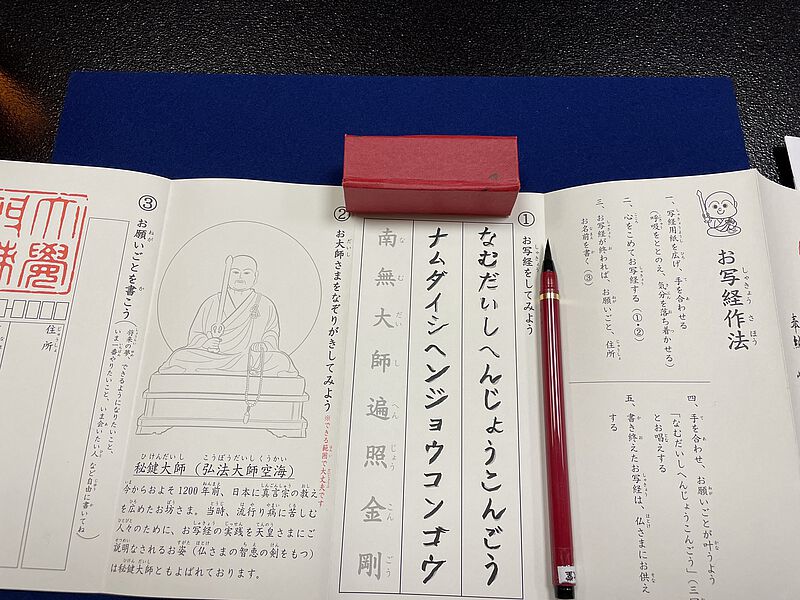 お写経作法
一、写経用紙を広げ、手を合わせる
(呼吸をととのえ、気分を落ち着かせる)
二、心をこめてお写経する(①・②)
三、お写経が終われば、お願いごと、住所
お名前を書く(③)
四、手を合わせ、お願いごとが叶うよう
「なむだいしへんじょうこんごう」(三
とお唱えする
五、書き終えたお写経は、仏さまにお供え
する
① お写経をしてみよう
なむだいしへんじょうこんごう
ナムダイシヘンジョウコンゴウ
南無大師遍照金剛
② お大師さまをなぞりがきしてみよう
※できる範囲で大丈夫です
秘鍵大師(弘法大師空海)
今からおよそ1200年前、日本に真言宗の教え
を広めたお坊さま。当時、流行り病に苦しむ
人々のために、お写経の実践を天皇さまにご
説明なされるお姿(仏さまの智恵の剣をもつ)
は秘鍵大師ともよばれております。
③ お願いごとを書こう
将来の夢、できるようになりたいこと、
いま一番やりたいこと、いま会いたい人
など自由に書いてね
住所